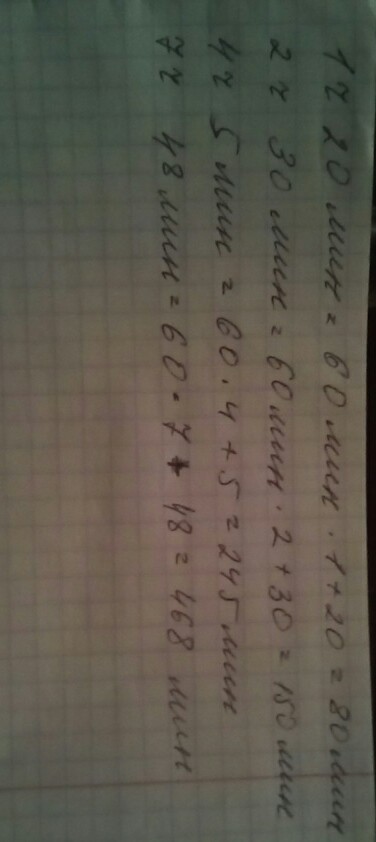 1ч 20 мин = 60 мин · 1 + 20 = 80 мин
2ч 30 мин = 60 мин · 2 + 30 = 150 мин
4ч 5 мин = 60 · 4 + 5 = 245 мин
7ч 48 мин = 60 · 7 + 48 = 468 мин